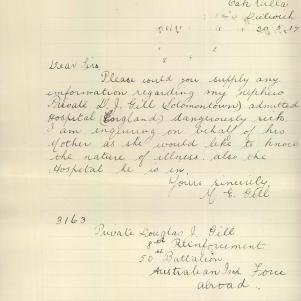 Oak Villa
Dulwich
29.5.17
Dear Sir
Please could you supply any
information regarding my nephew
Private D. J. Gill (Solomontown) admitted
Hospital (England) dangerously sick.
I am enquiring on behalf of his
Mother as she would like to know
the nature of illness. also the
Hospital he is in.
Yours sincerely,
M. E. Gill
3163
Private Douglas J. Gill
8th Reinforcement
50th Battalion
Australian Imp. Force
abroad.